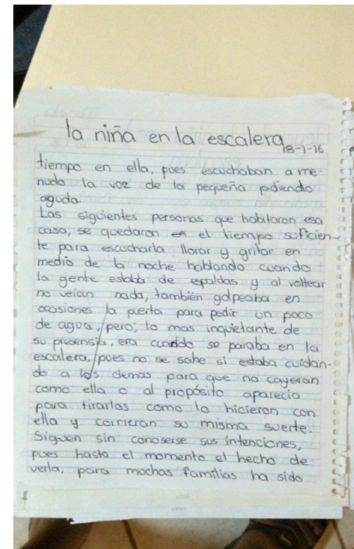 la niña en la escalera
18-1-16
tiempo en ella, pues escuchaban a me-
nudo la voz de la pequeña pidiendo
ayuda.
Las siguientes personas que habitaron esa
casa, se quedaron en el tiempo suficien-
te para escucharla llorar y gritar en
medio de la noche hablando cuando
la gente estaba de espaldas y al voltear
no veían nada, también golpeaba en
ocasiones la puerta para pedir un poco
de agua, pero; lo mas inquietante de
su presencia, era cuando se paraba en la
escalera, pues no se sabe si estaba cuidan-
do a los demas para que no cayeran
como ella o al propósito aparecía
para tirarlas como lo hicieron con
ella y corrieron su misma suerte.
Siguen sin conocerse sus intenciones,
pues hasta el momento el hecho de
verla, para muchas familias ha sido